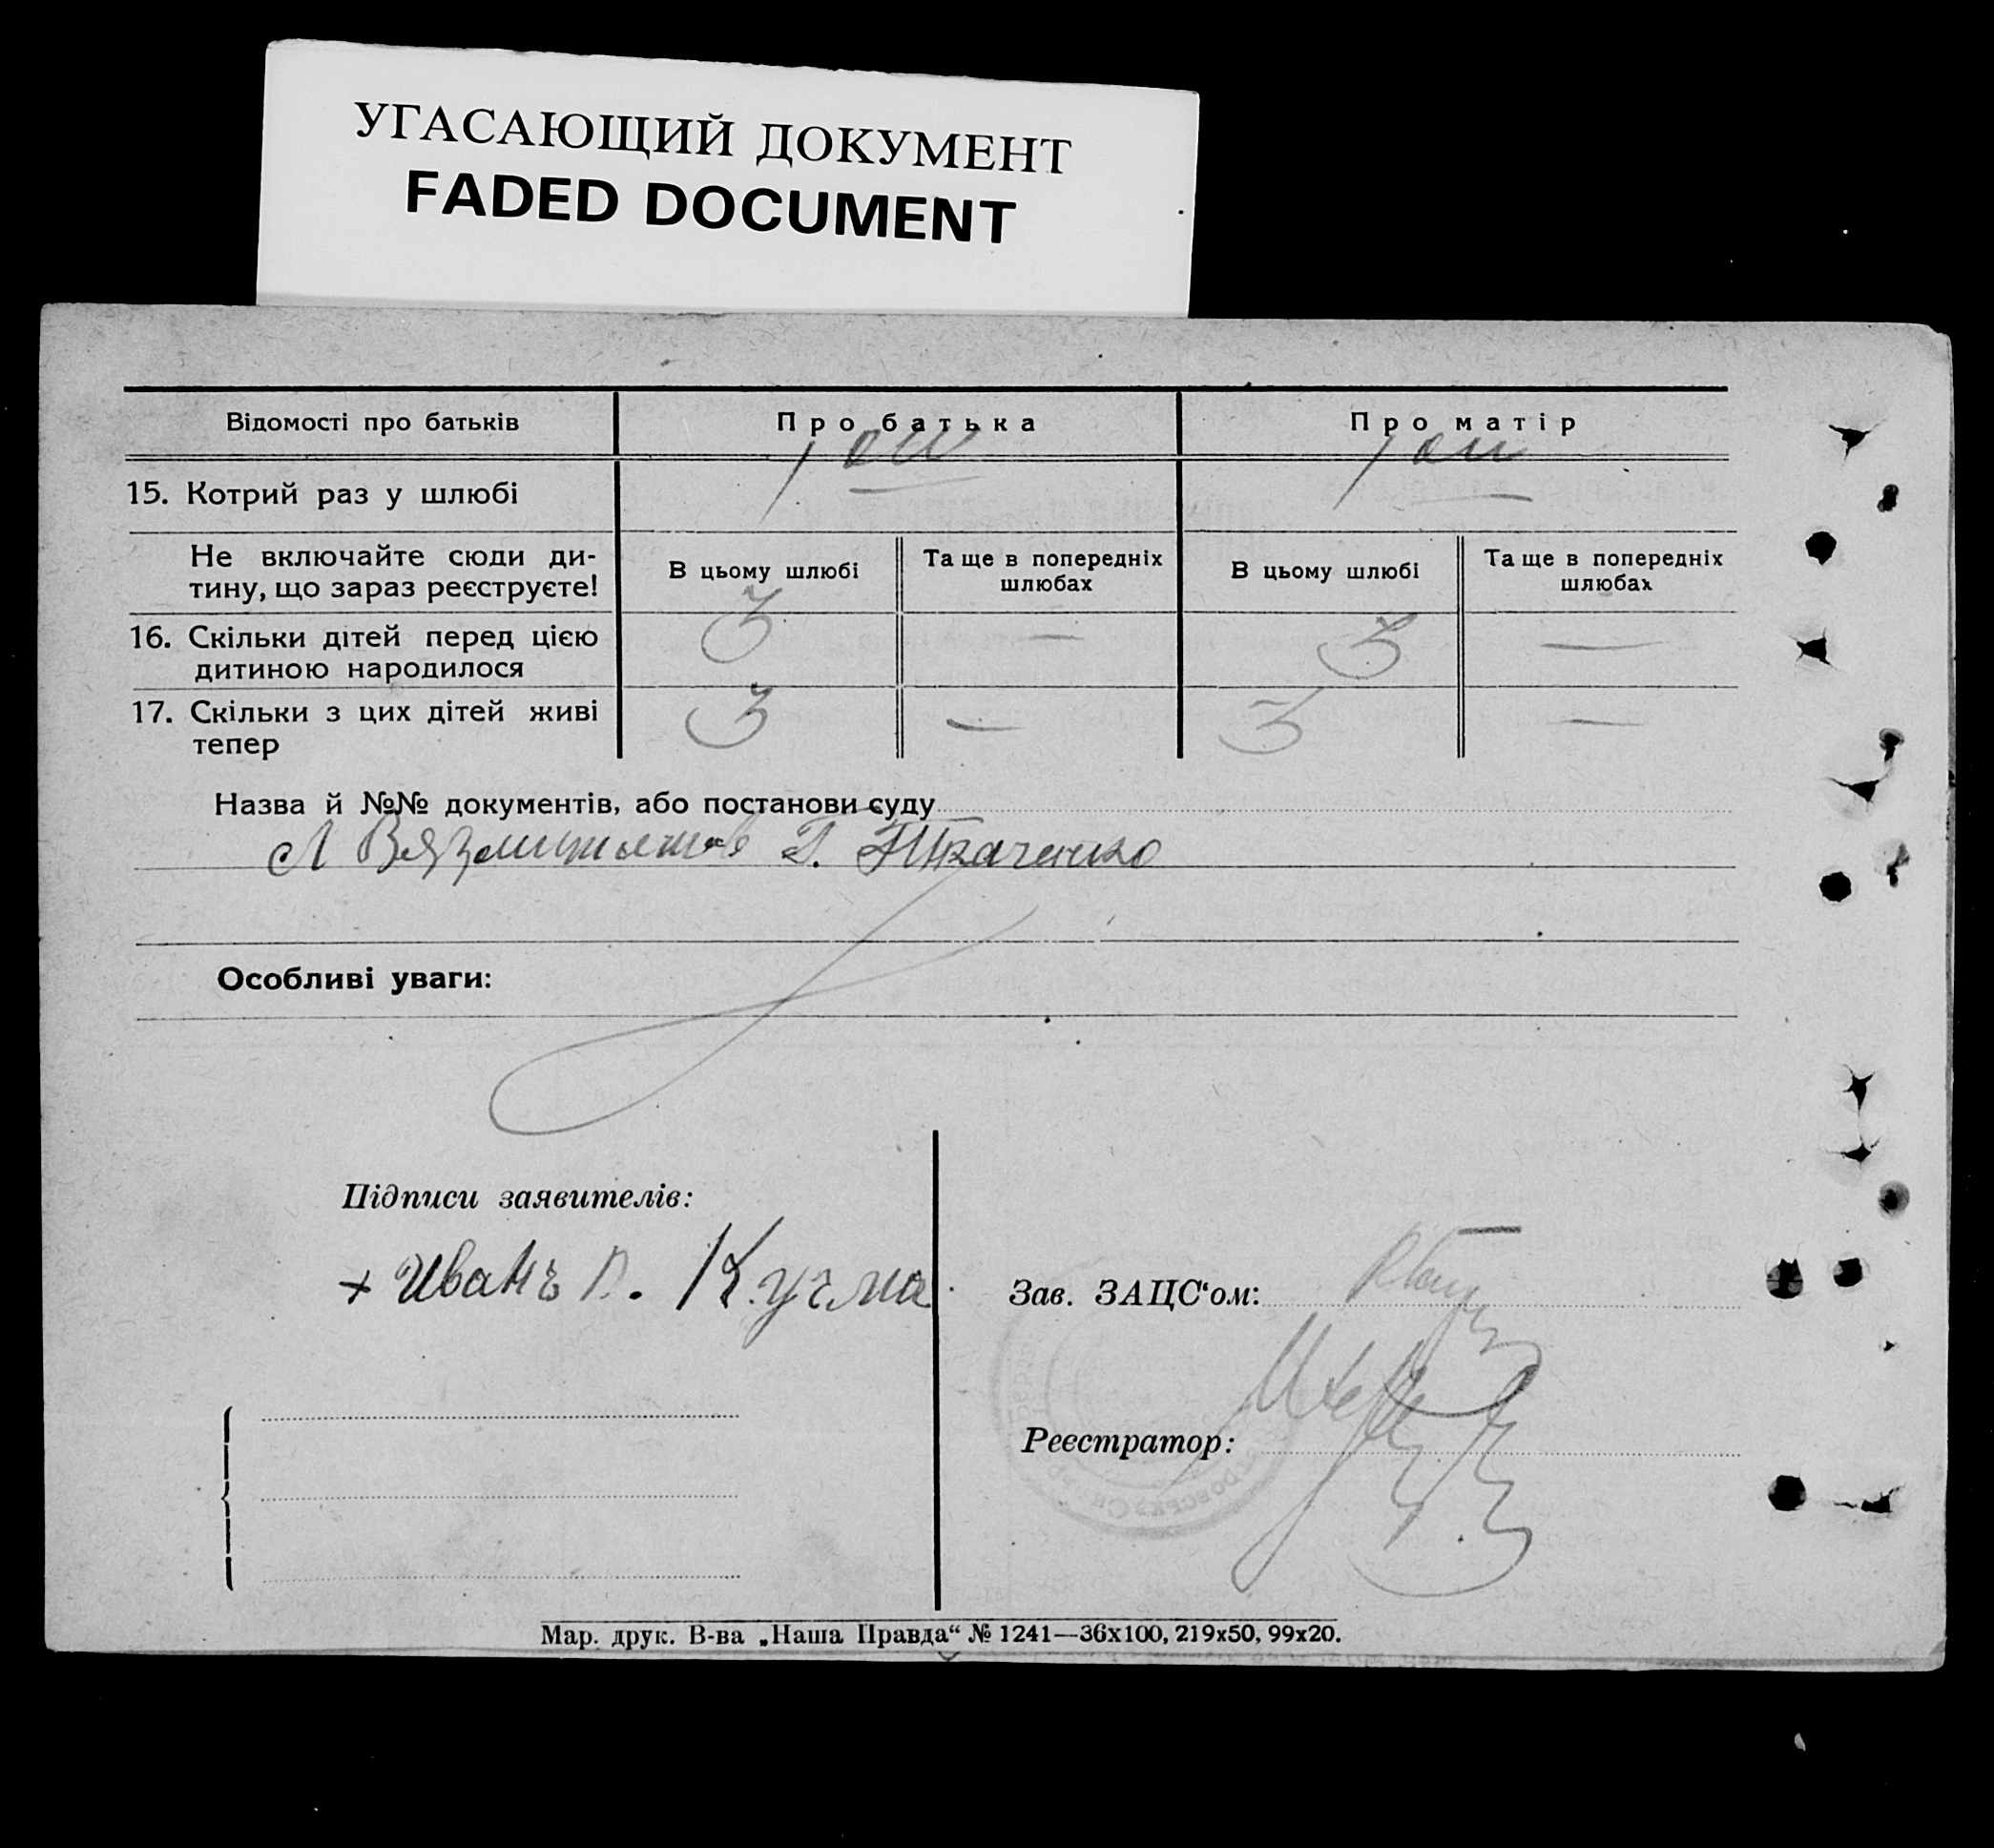 УГАСАЮЩИЙ ДОКУМЕНТ
FADED DOCUMENT
Відомості про батьків
Про батька
Про матір
15. Котрий раз у шлюбі
1
1
Не включайте сюди ди-
тину, що зараз реєструєте!
В цьому шлюбі
Та ще в попередніх
шлюбах
В цьому шлюбі
Та ще в попередніх
шлюбах
16. Скільки дітей перед цією
дитиною народилося
3 — 3 —
17. Скільки з цих дітей живі
тепер
3 — 3 —
Назва й №№ документів, або постанови суду
Ткаченко
Особливі уваги:
Підписи заявителів:
+ Иванъ П. Кучма
Зав. ЗАЦС‘ом:
Реєстратор:
Мар. друк. В-ва „Наша Правда“ № 1241—36х100, 219х50, 99х20.